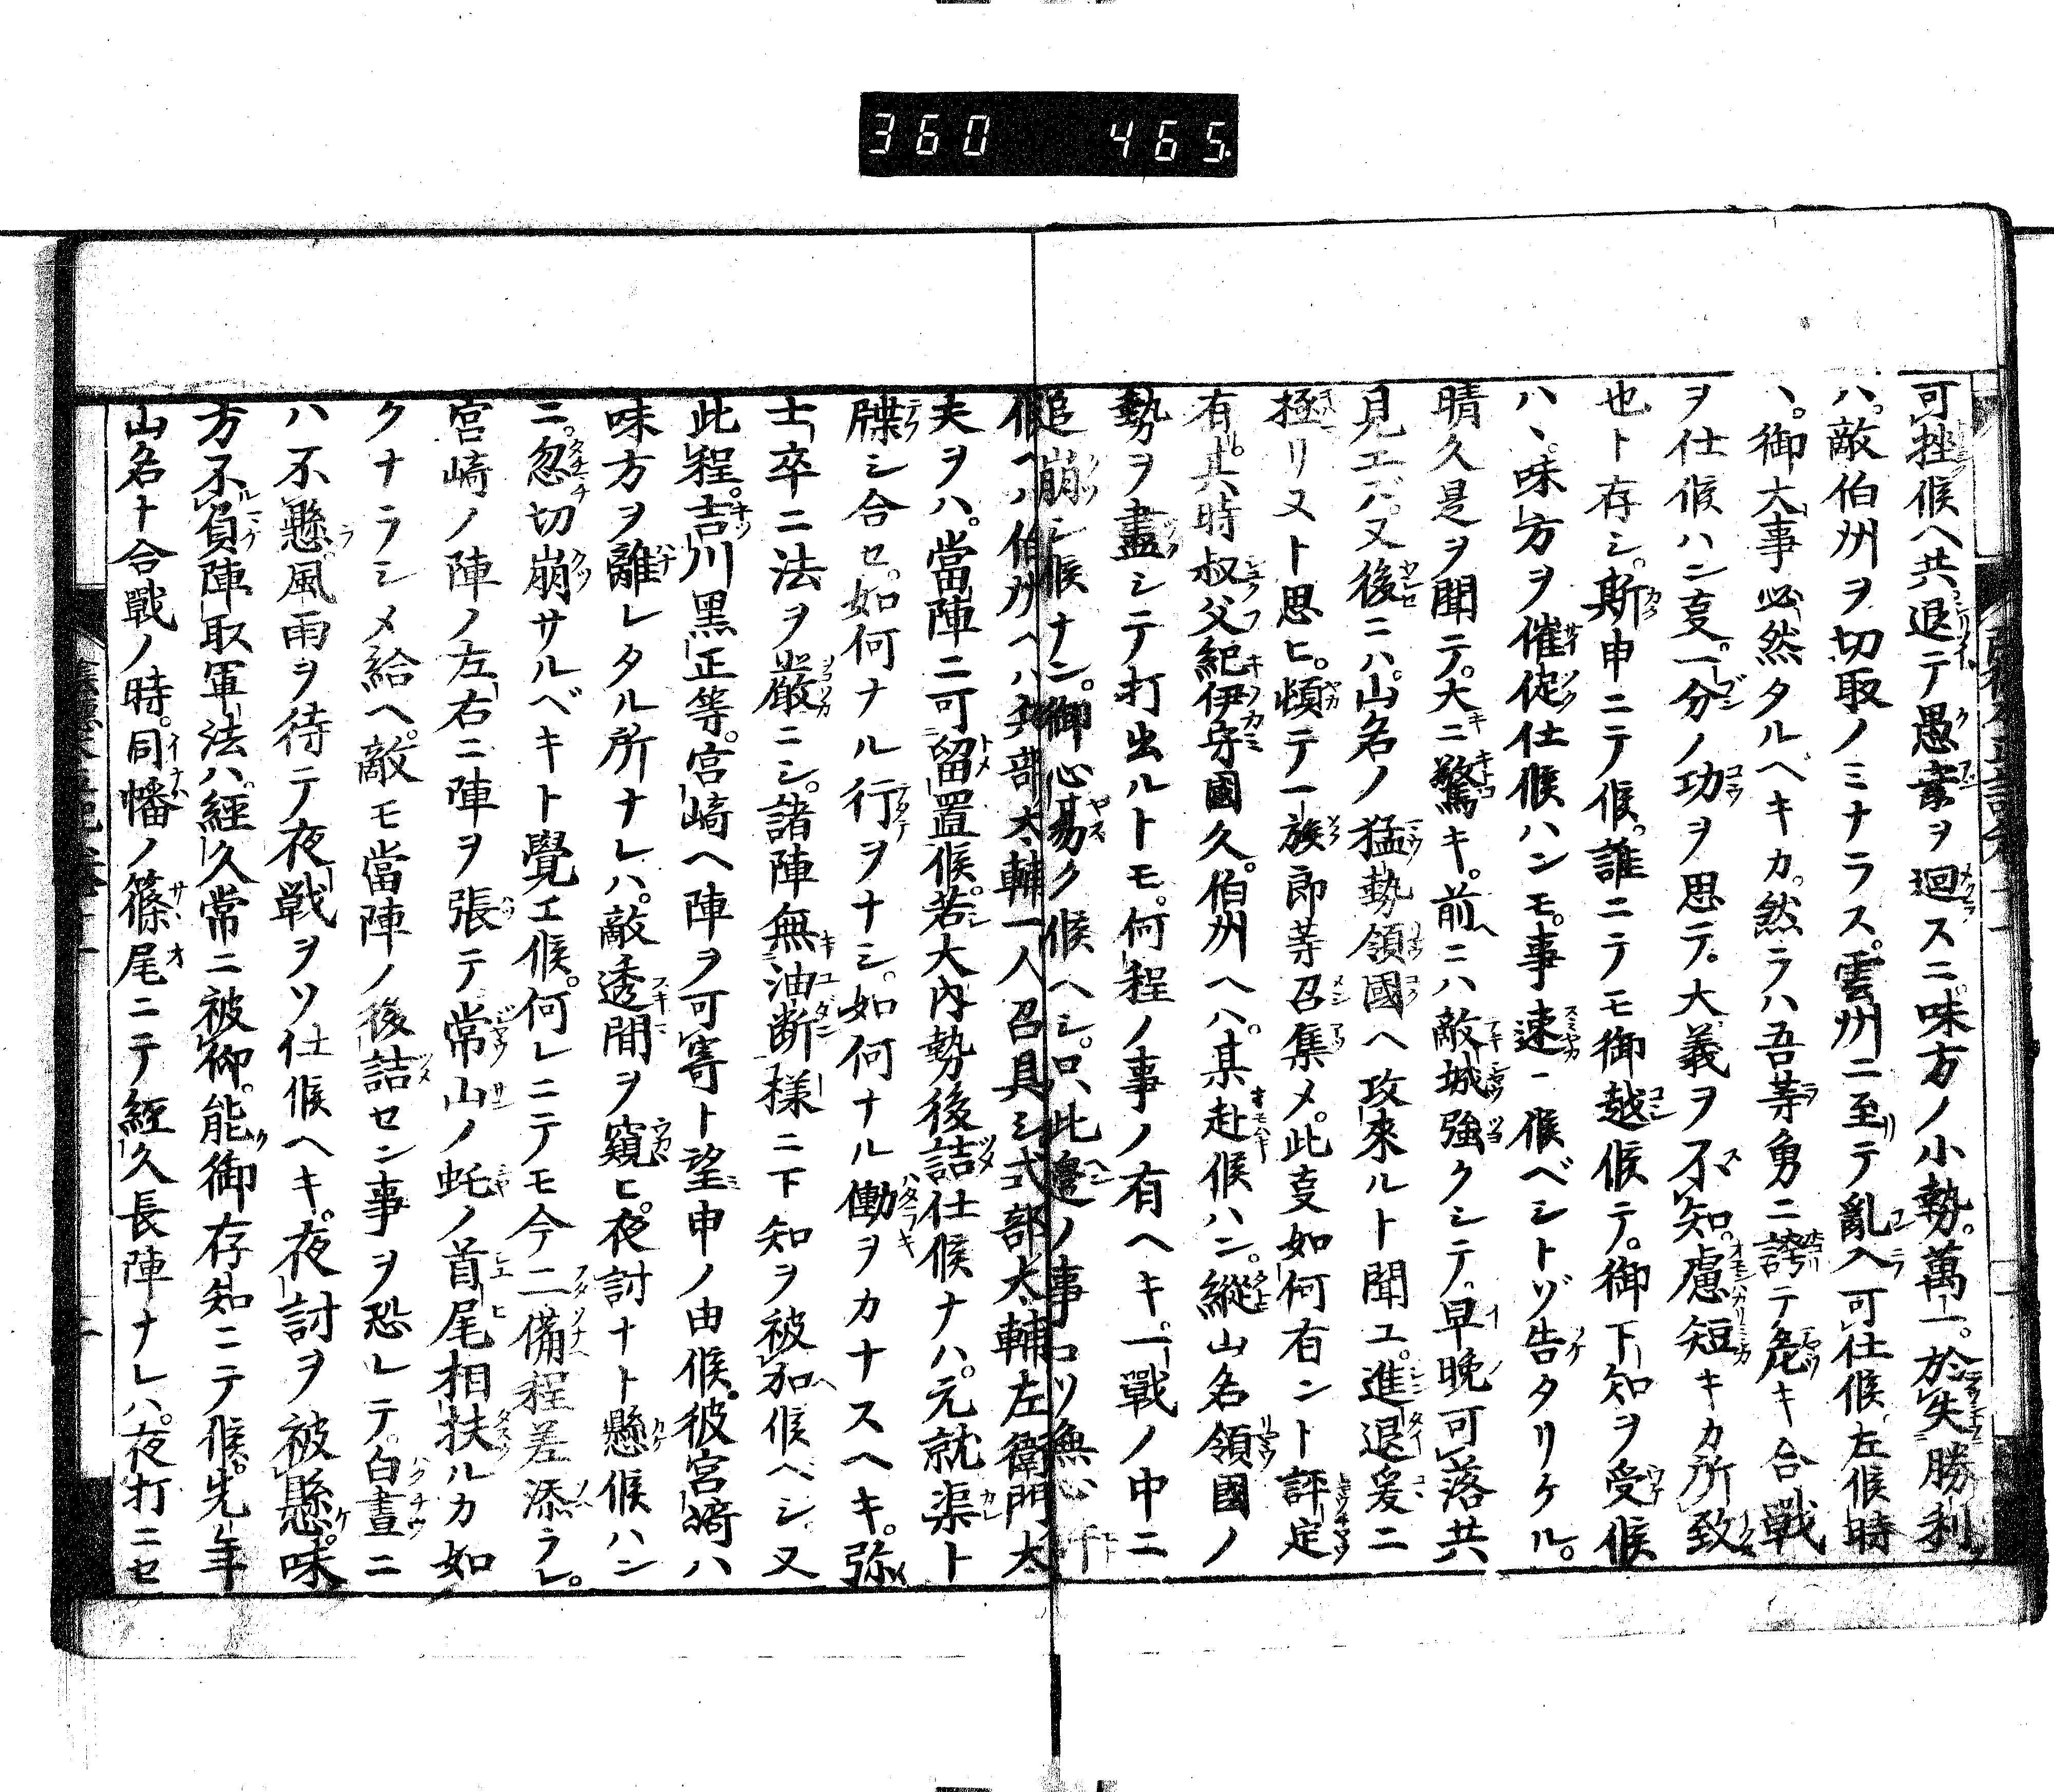 360 465.
可挫候ヘ共。退テ愚案ヲ廻スニ。味方ノ小勢。萬一。於失勝利
ハ。敵伯州ヲ切取ノミナラス。雲州ニ至テ亂入可仕候。左候時
ハ。御大事必然タルベキカ。然ラハ吾等勇ニ誇テ危キ合戰
ヲ仕候ハン支。一分ノ功ヲ思テ。大義ヲ不知。慮短キカ所致
也ト存シ。斯申ニテ候。誰ニテモ御越候テ。御下知ヲ受候
ハヽ。味方ヲ催促仕候ハンモ。事速ニ候ベシトゾ告タリケル。
晴久是ヲ聞テ。大ニ驚キ。前ニハ敵城強クシテ。早晩可落共
見エズ。又後ニハ。山名ノ猛勢領國ヘ攻來ルト聞エ。進退爰ニ
極リヌト思ヒ。頓テ一族郎等召集メ。此支如何有ント評定
有。其時叔父紀伊守國久。伯州ヘハ。某赴候ハン。縱山名領國ノ
勢ヲ盡シテ打出ルトモ。何程ノ事ノ有ヘキ。一戰ノ中ニ
追崩シ候ナン。御心易ク候ヘシ。只此邊ノ事コソ無心許
候ヘハ伯州ヘハ兵部太輔一人召具シ式部太輔左衛門太
夫ヲハ。當陣ニ可留置候。若大内勢後詰仕候ナハ。元就渠ト
牒シ合セ。如何ナル行ヲナシ。如何ナル働ヲカナスヘキ。弥
士卒ニ法ヲ嚴ニシ。諸陣無油断樣ニ下知ヲ被加候ベシ。又
此程。吉川黒正等。宮崎ヘ陣ヲ可寄ト望申ノ由候。彼宮崎ハ
味方ヲ離レタル所ナレハ。敵透間ヲ窺ヒ。夜討ナト懸候ハン
ニ。忽切崩サルベキト覺エ候。何レニテモ今二備程差添ラレ。
宮崎ノ陣ノ左右ニ陣ヲ張テ常山ノ蛇ノ首尾相扶ルカ如
クナラシメ給ヘ。敵モ當陣ノ後詰セン事ヲ恐レテ。白晝ニ
ハ不懸。風雨ヲ待テ夜戰ヲソ仕候ヘキ。夜討ヲ被懸。味
方不負陣取軍法ハ。經久常ニ被仰。能御存知ニテ候。先年
山名ト合戰ノ時。同幡ノ篠尾ニテ經久長陣ナレハ。夜打ニセ